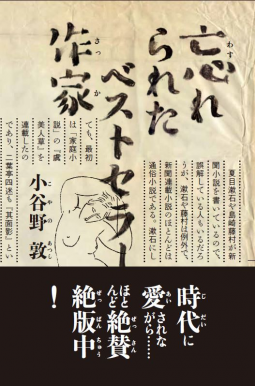 忘れ
られた
ベストセラー
作家
わす
さっか
小谷野 敦
こやの あつし
夏目漱石や島崎藤村が新
聞小説を書いているので、
誤解している人もいるだろ
うが、漱石や藤村は例外で、
新聞連載小説のほとんどは
通俗小説である。漱石にし
ても、最初
は「家庭小
説」の『虞
美人草』を
連載したの
であり、二葉亭四迷も『其面影』とい
時代に
愛されな
がら……
ほと
んど絶賛
絶版中
!
じだい
あい
ぜっさん
ぜっぱんちゅう